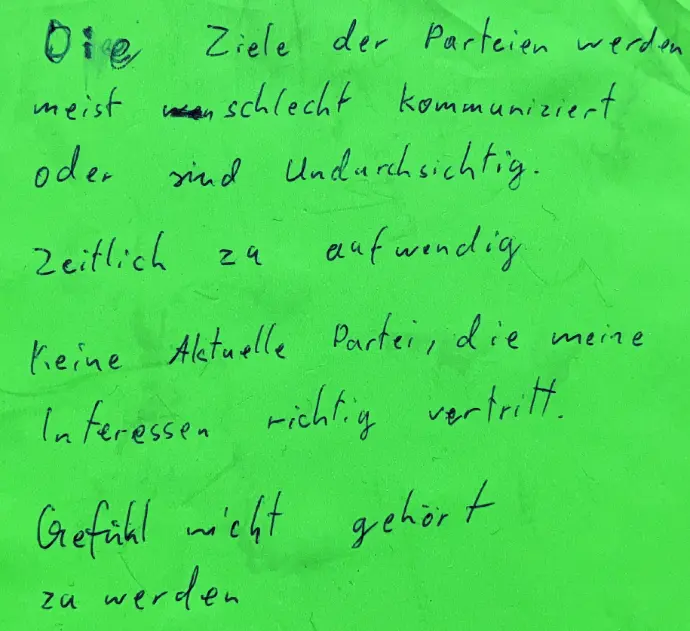 Die Ziele der Parteien werden
meist schlecht kommuniziert
oder sind Undurchsichtig.
Zeitlich zu aufwendig
Keine Aktuelle Partei, die meine
Interessen richtig vertritt.
Gefühl nicht gehört
zu werden